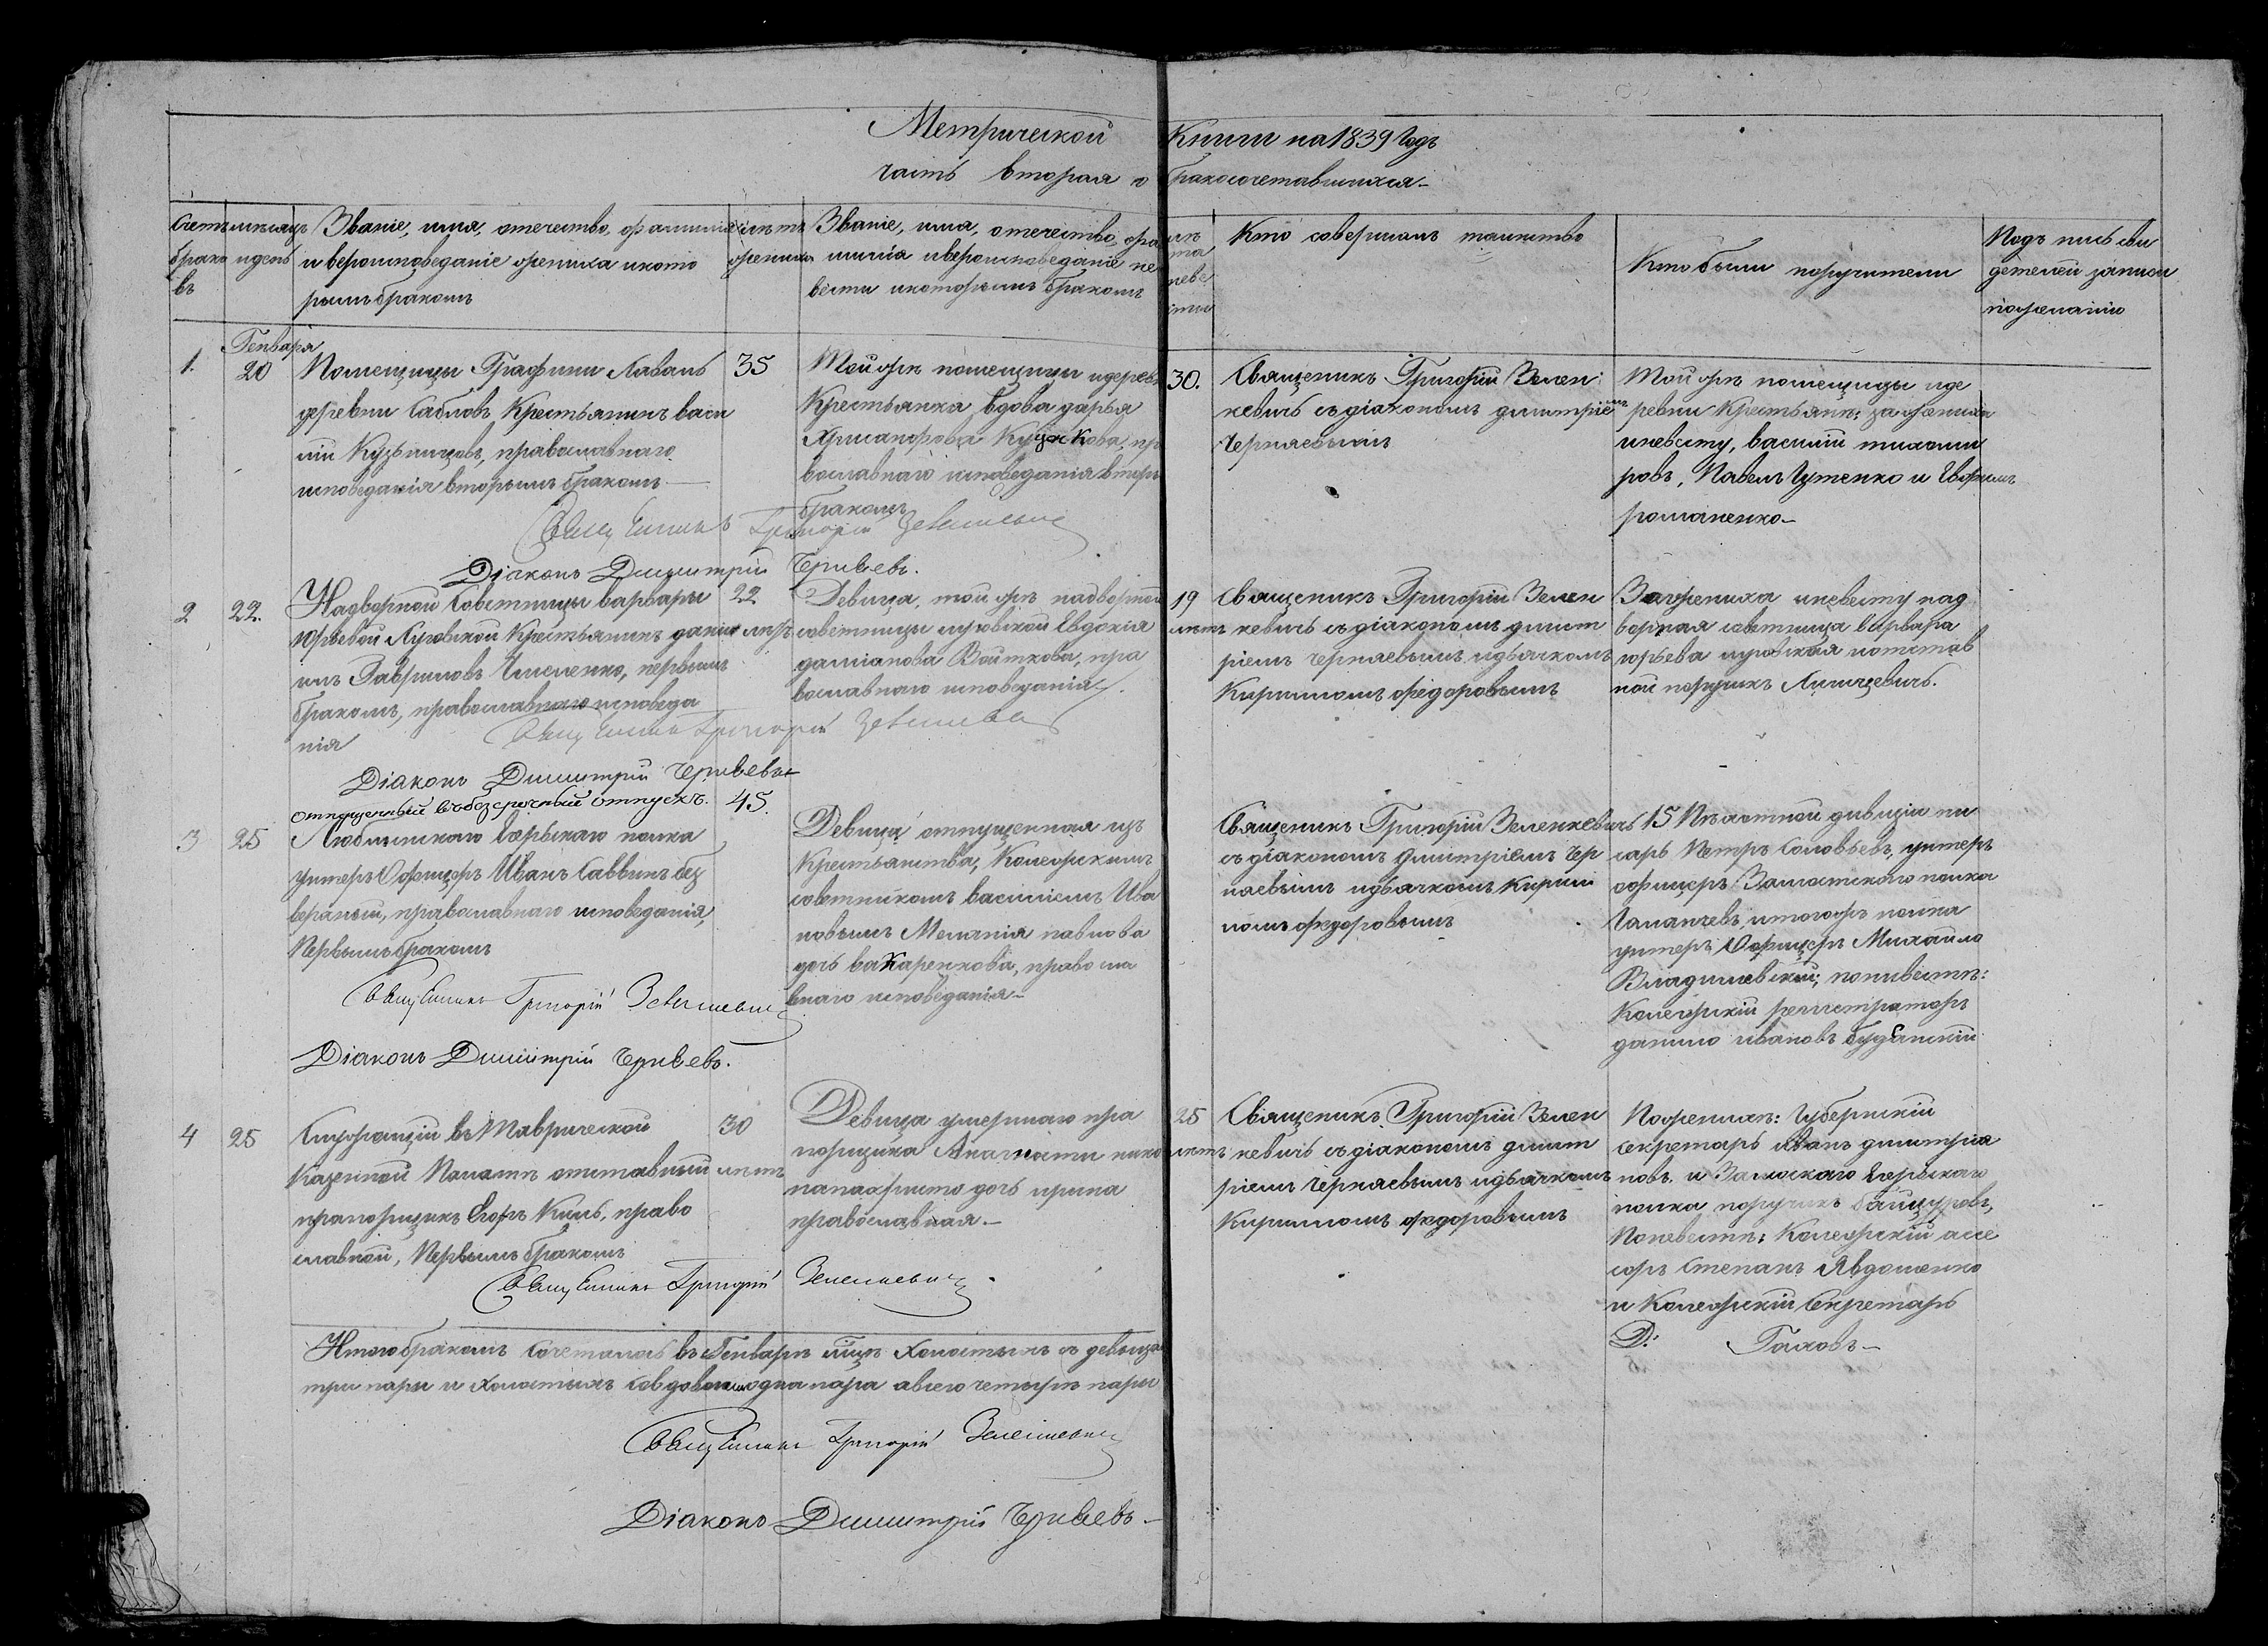 Метрической Книги на 1839 Годъ
часть вторая о бракосочетавшихся
Счетъ браковъ
месяцъ и день
Званіе, имя, отечество, фамилія
и вероисповеданіе жениха и кото
рымъ бракомъ
лѣта
жениха
Званіе, имя, отечество, фа
милія и вероисповеданіе не
весты и которымъ бракомъ
лѣ
та
неве
сты
Кто совершалъ таинство
Кто были поручители
Подъ пись сви
детелей записи
по желанію
Генваря
1.
20
Помещицы Графини Лаваль
деревни Сабловъ Крестьянинъ васи
лій Кузьницовъ, православнаго
исповеданія вторымъ бракомъ
35
Той жъ помещицы и дерев
Крестьянка вдова дарья
Христофорова Куцакова, пра
вославнаго исповеданія вторы
бракомъ
30.
Священикъ Григорій Зелен
кевичь съ діакономъ димитріемъ
Черняевымъ
Той жъ помещицы и де
ревни Крестьяне: за жениха
и невесту, василій тихоми
ровъ, Павелъ Гутенко и
романенко
Священникъ Григорій Зеленкевичь
Діаконъ Димитрій Черняевъ.
2
22.
Надворной Советницы варвары
юрьевой Луговской Крестьянинъ дани
илъ Гавриловъ первымъ
бракомъ, православнаго исповеда
нія
22
лѣтъ
Девица, той жъ надворной
советницы луговской Евдокія
даміанова Войткова, пра
вославнаго исповеданія.
19
лѣтъ
Священикъ Григорій Зелен
кевичь съ діакономъ димит
ріемъ черняевымъ и дьячкомъ
Кириломъ федоровымъ
За жениха и невесту над
ворная советница варвара
юрьева луговская и отстав
ной поручикъ
Священникъ Григорій Зеленкевичь
Діаконъ Димитрій Черняевъ
3
25
отпущенный въ безсрочный отпускъ.
Люблинскаго Егерскаго полка
унтеръ Офицеръ Иванъ Саввинъ без
верхный, православнаго исповеданія,
Первымъ бракомъ
45.
Девица отпущенная изъ
Крестьянства, Колежскимъ
советникомъ василіемъ Ива
новымъ Меланія павлова
дочь вакаренкова, правосла
внаго исповеданія
Священикъ Григорій Зеленкевичь
съ діакономъ димитріемъ Чер
няевымъ и дьячкомъ Кирил
ломъ федоровымъ
15 Пехотной дивизіи пи
сарь Петръ Соловьевъ, унтеръ
офицеръ Замостскаго полка
и того жъ полка
унтеръ Офицеръ Михайло
по невесте:
Колежскій регистраторъ
данило ивановъ
Священникъ Григорій Зеленкевичь
Діаконъ Димитрій Черняевъ.
4
25
Служащій въ Таврической
Казенной Палате отставный
прапорщикъ Егоръ Киль, право
славной, Первымъ бракомъ
30
лѣтъ
Девица умершаго пра
порщика нико
папахристо дочь ирина
православная
25
лѣтъ
Священикъ Григорій Зелен
кевичь съ діакономъ димит
ріемъ Черняевымъ и дьячкомъ
Кириломъ федоровымъ
По женихе: Губернскій
Секретарь иванъ димитріа
новъ. и Замоскаго Егерскаго
полка поручикъ
По невесте: Колежскій ассе
соръ Степанъ Явдошенко
и Колежскій Секретарь
Д: Гаховъ
Священникъ Григорій Зеленкевичь.
Итого бракомъ Сочеталось въ Генваре мцѣ холостыхъ съ девица
три пары и холостыхъ совдовами одна пара а всего четыре пары
Священникъ Григорій Зеленкевичь
Діаконъ Димитрій Черняевъ